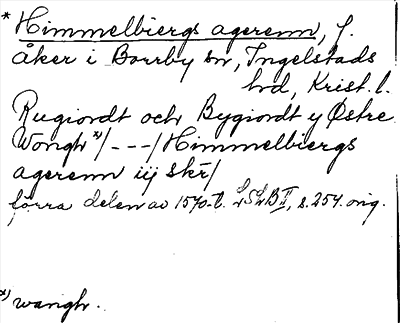 * Himmelbiergs agerenn, f.
åker i Borrby sn, Ingelstads
hd, Krist. l.
Rugiordt och Bygiordt y Østre
Wongh x)/---/ Himmelbiergs
agerenn iij skr̄/
förra delen av 1570-t. LSLB II, s. 254. orig.
x) wangh.